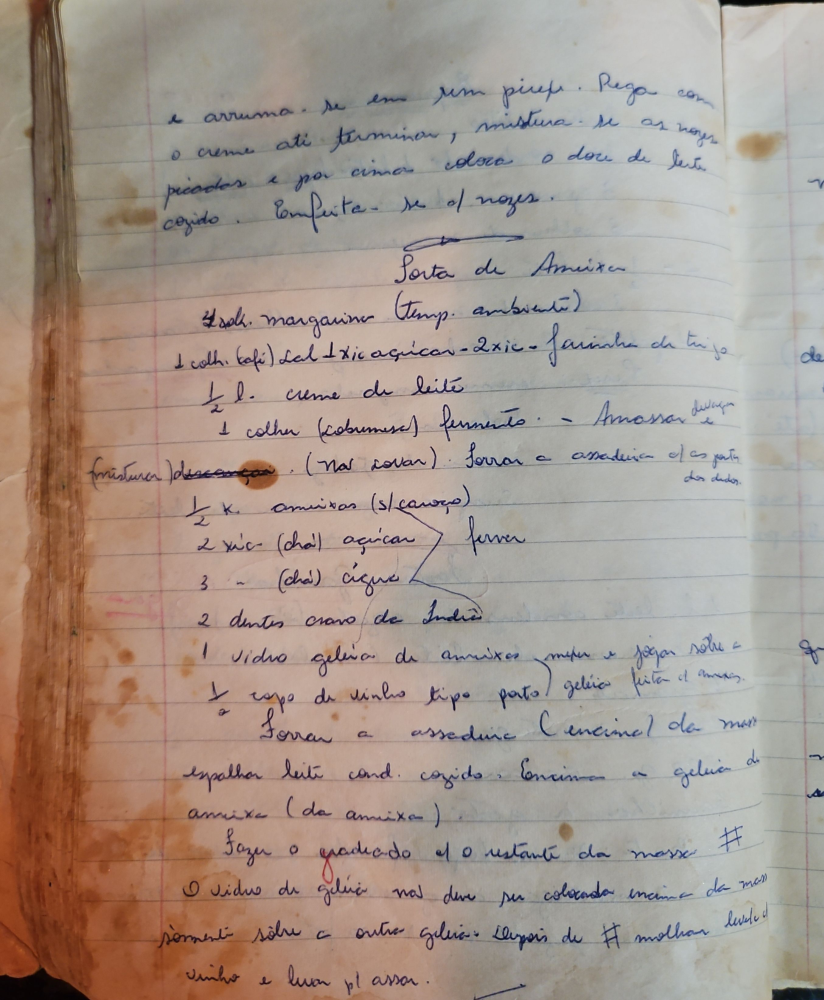 e arruma-se em um pirex. Rega com
o creme até terminar, mistura-se as nozes
picadas e por cima coloca o doce de leite
cozido. Enfeita-se c/ nozes.
Torta de Ameixa
colh. margarina (temp. ambiente)
1 colh. (café) sal 1 xic açúcar - 2 xic - farinha de trigo
1/2 l. creme de leite
1 colher (sobremesa) fermento. - Amassar e
(misturar) descançar. (não sovar). Forrar a assadeira c/ as pontas
dos dedos.
1/2 k. ameixas (s/ caroço)
2 xic- (chá) açúcar ferver
3 " (chá) água
2 dentes cravo da Índia
1 vidro geléia de ameixas mexer e jogar sôbre a
1/2 copo de vinho tipo porto geléia feita c/ ameixas.
Forrar a assadeira (encima) da massa
espalhar leite cond. cozido. Encima a geleia de
ameixa (da ameixa).
Fazer o gradeado c/ o restante da massa #
O vidro de geléia não deve ser colocada encima da massa
sòmente sôbre a outra geléia. Depois de # molhar leve c/
vinho e levar p/ assar.